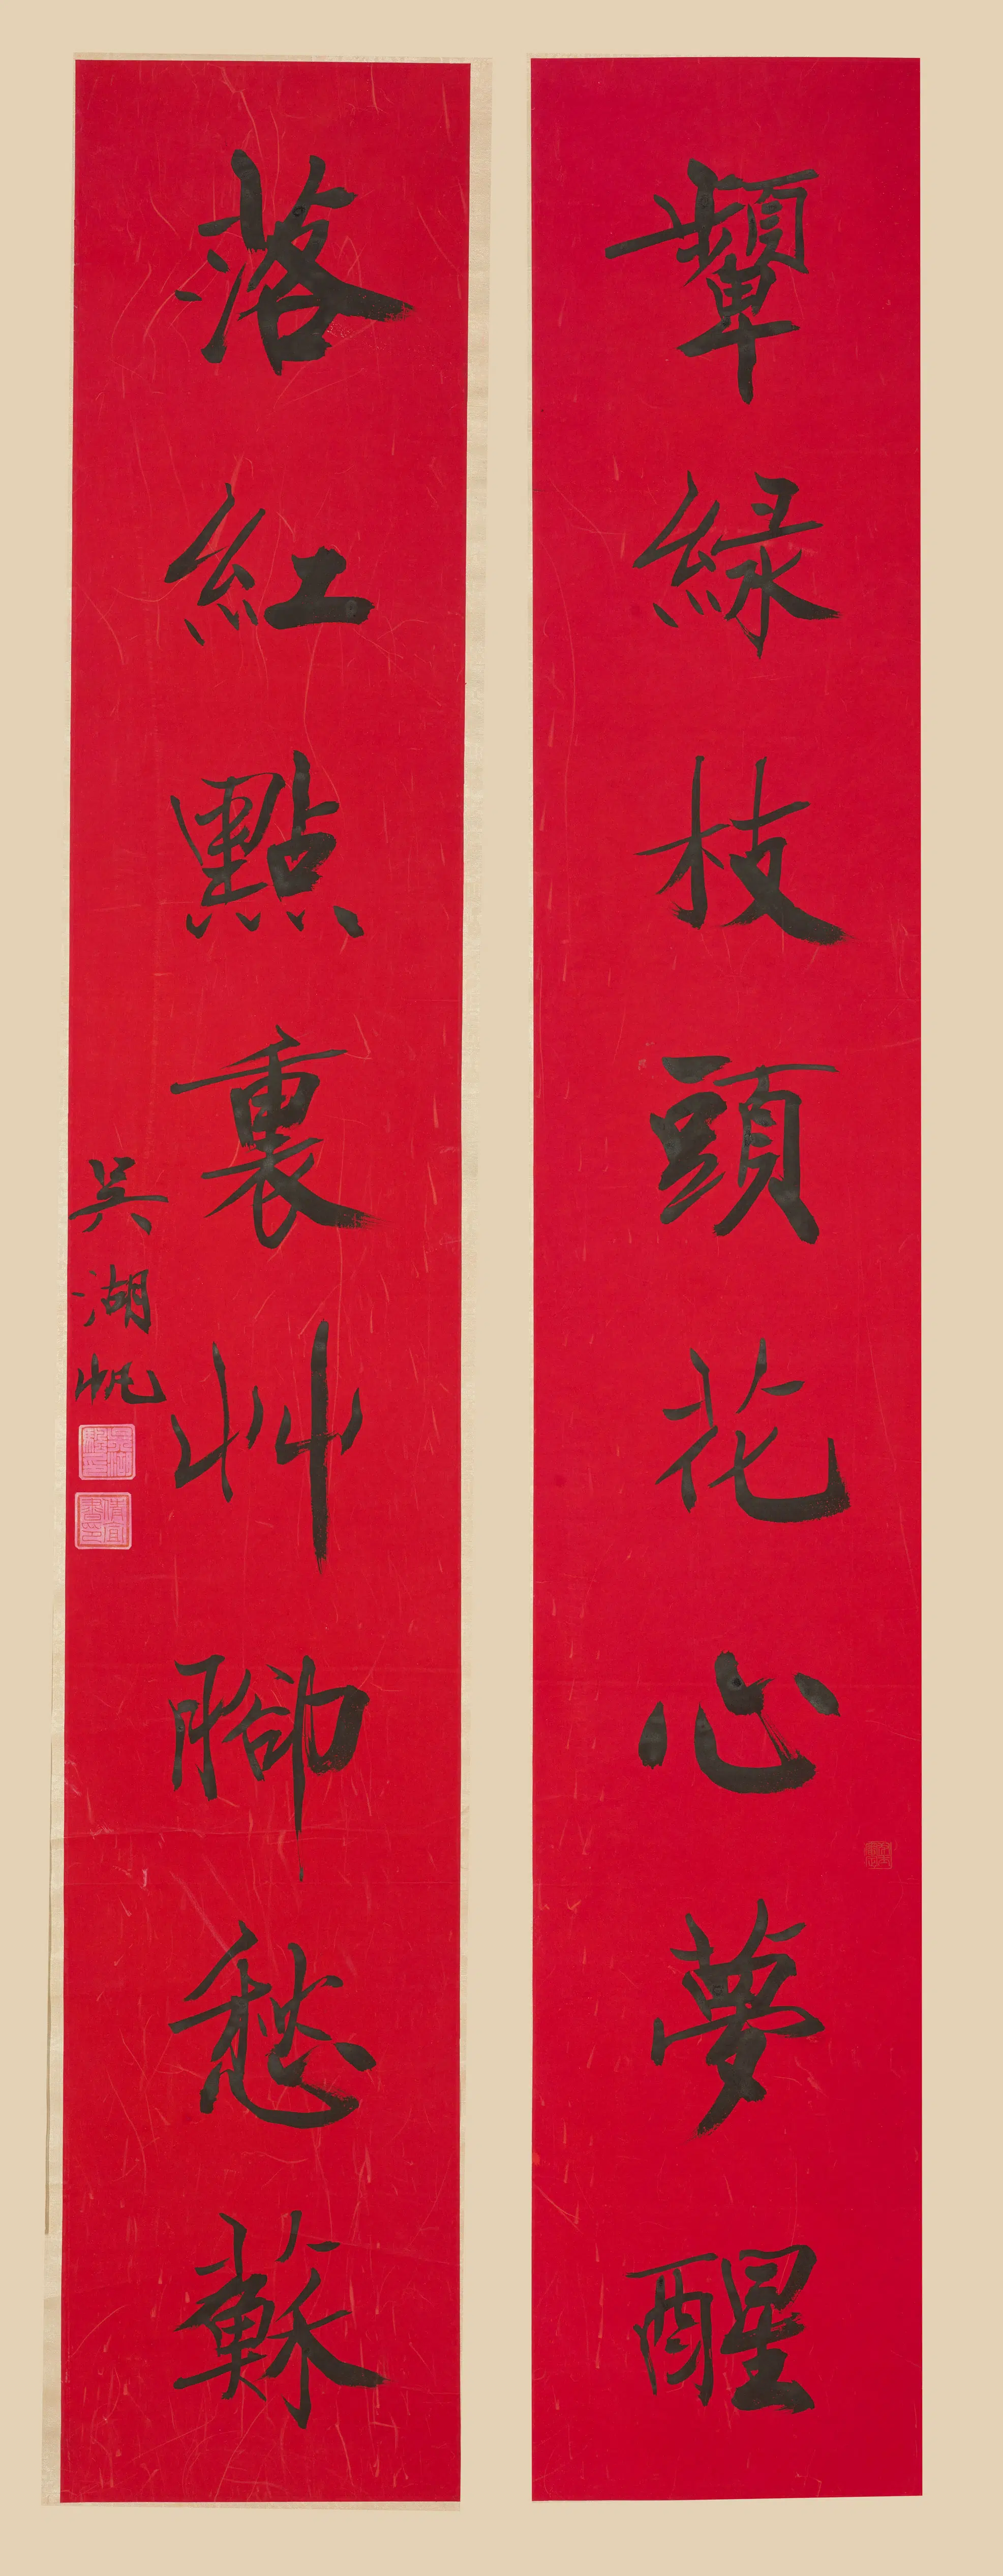 顰緑枝頭花心夢醒
落紅點裏艸腳愁蘇
吳湖帆